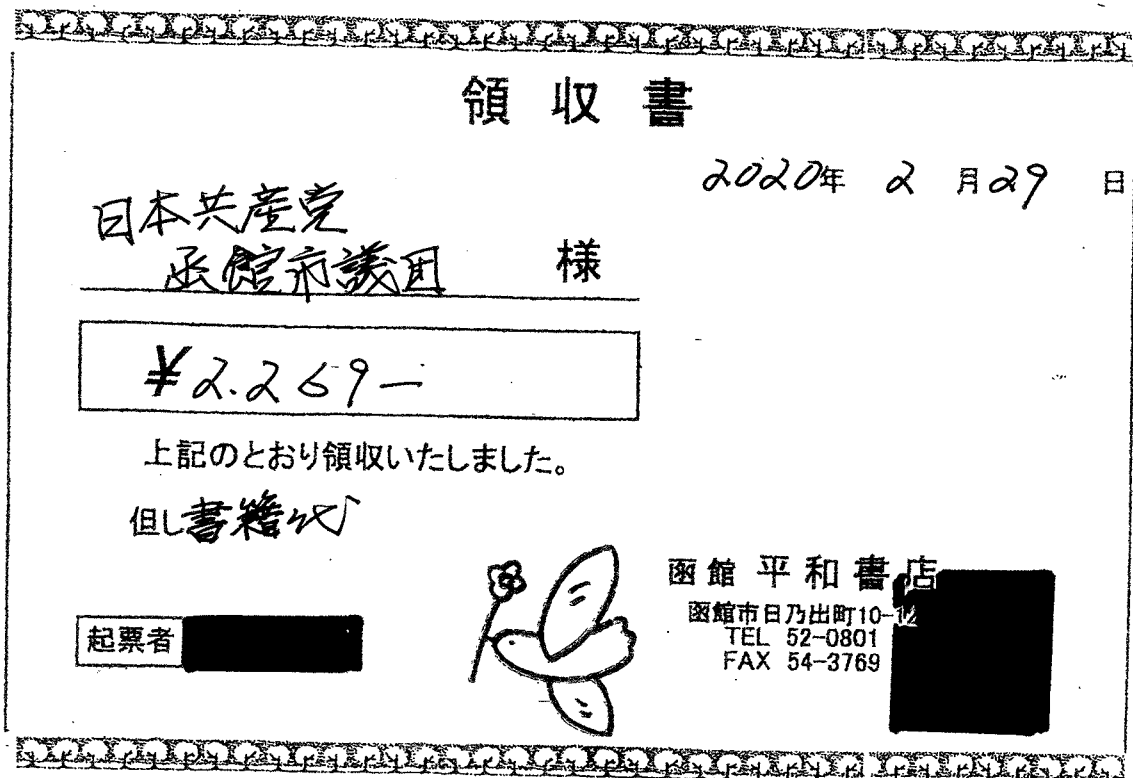 領収書
2020年 2月29日
日本共産党
函館市議団 様
¥2.269-
上記のとおり領収いたしました。
但し書籍代
函館 平和書店
函館市日乃出町10-12
TEL 52-0801
FAX 54-3769
起票者